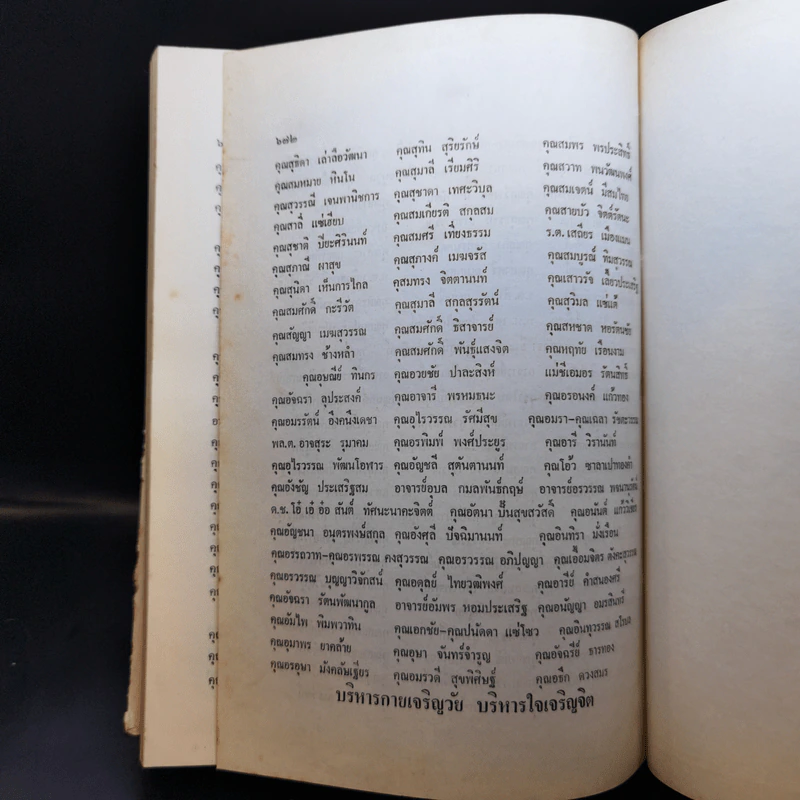 ๖๗๒
คุณสุธิดา เล่าลือวัฒนา คุณสุทิน สุริยรักษ์ คุณสมพร พรประสิทธิ์
คุณสมหมาย หินโน คุณสุมาลี เรียมศิริ คุณสวาท พนวัฒนพงศ์
คุณสุวรรณี เจนพานิชการ คุณสุชาดา เทศะวิบุล คุณสมเจตน์ มีสมไทย
คุณสาลี่ แซ่เฮียบ คุณสมเกียรติ สกุลสม คุณสายบัว จิตต์รัตนะ
คุณสุชาติ ปิยะศิรินนท์ คุณสมศรี เที่ยงธรรม ร.ต.เสถียร เมืองแมน
คุณสุภาณี ผาสุข คุณสุภางค์ เมฆจรัส คุณสมบูรณ์ ทิมสุวรรณ
คุณสุนิดา เห็นการไกล คุณสมทรง จิตตานนท์ คุณเสาวรัจ เลี้ยวประเสริฐ
คุณสมศักดิ์ กะรีวัต คุณสุมาลี สกุลสุรรัตน์ คุณสุวิมล แซ่แต้
คุณสัญญา เมฆสุวรรณ คุณสมศักดิ์ ธิสาจารย์ คุณสหชาด หอรัตนชัย
คุณสมทรง ช้างหลำ คุณสมศักดิ์ พันธุ์แสงจิต คุณหฤทัย เรือนงาม
คุณอุษณีย์ ทินกร คุณอวยชัย ปาละสิงห์ แม่ชีเอมอร รัตนสิทธิ์
คุณอัจฉรา ลุประสงค์ คุณอาจารี พรหมธนะ คุณอรอนงค์ แก้วทอง
คุณอมรรัตน์ อึงคนึงเดชา คุณอุไรวรรณ รัศมีสุข คุณอมรา-คุณเฉลา รัชตะวรรณ
พล.ต. อาจสุระ รุมาคม คุณอรพิมพ์ พงศ์ประยูร คุณอารี วิรานันท์
คุณอุไรวรรณ พัฒนโอฬาร คุณอัญชลี สุตันตานนท์ คุณโอ้ว ซาลาเปาทองคำ
คุณอังชัญ ประเสริฐสม อาจารย์อุบล กมลพันธ์กฤษ์ อาจารย์อรวรรณ
ด.ช. โอ๋ เอ๋ อ๋อ สันต์ ทัศนะนาคะจิตต์ คุณอัตนา ปั้นสุขสวัสดิ์ คุณอนันต์
คุณอัญชนา อนุตรพงษ์สกุล คุณอังศุลี ปัจฉิมานนท์ คุณอินทิรา มั่งเรือน
คุณอรรถวาท-คุณอรพรรณ คงสุวรรณ คุณอรวรรณ อภิปุญญา คุณเอื้อมจิตร ตังคะสุวรรณ
คุณอรวรรณ บุญญาวิจักสน์ คุณอดุลย์ ไทยวุฒิพงศ์ คุณอารีย์ คำสนองศรี
คุณอัจฉรา รัตนพัฒนากูล อาจารย์อัมพร หอมประเสริฐ คุณอนัญญา อมรสินทร์
คุณอัมไพ พิมพวาทิน คุณเอกชัย-คุณปนัดดา แซ่โซว คุณอินทุวรรณ
คุณอุมาพร ยาคล้าย คุณอุษา จันทร์จำรูญ คุณอัจฉรีย์ ธารทอง
คุณอรอุษา มังคลันเฐียร คุณอมรวดี สุขพิศิษฐ์ คุณอธึก ดวงสมร
บริหารกายเจริญวัย บริหารใจเจริญจิต